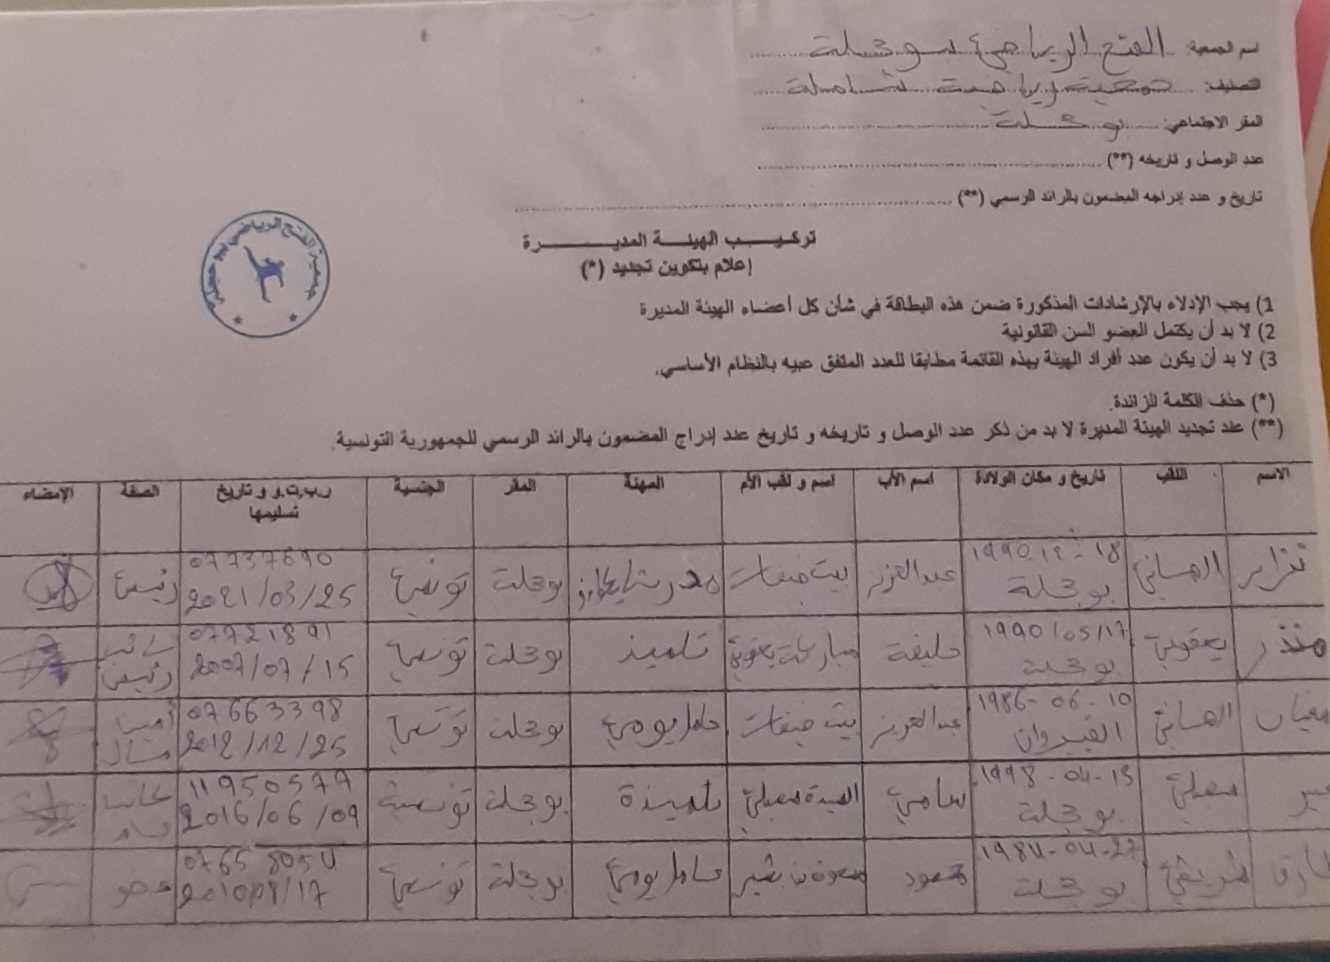 اسم الجمعية: الفتح الرياضي بوحجلة
التصنيف: جمعية رياضية شاملة
المقر الاجتماعي: بوحجلة
عدد الوصل و تاريخه (**)
تاريخ و عدد إدراجه المضمون بالرائد الرسمي (**)
جمعية الفتح الرياضي ببوحجلة
تركيب الهيئة المديرة
إعلام بتكوين تجديد (*)
1) يجب الإدلاء بالإرشادات المذكورة ضمن هذه البطاقة في شأن كل أعضاء الهيئة المديرة
2) لا بد أن يكتمل العضو السن القانونية
3) لا بد أن يكون عدد أفراد الهيئة بهذه القائمة مطابقا للعدد المتفق عبيه بالنظام الأساسي.
(*) حذف الكلمة الزائدة.
(**) عند تجديد الهيئة المديرة لا بد من ذكر عدد الوصل و تاريخه و تاريخ عدد إدراج المضمون بالرائد الرسمي للجمهورية التونسية.
الاسم اللقب تاريخ و مكان الولادة اسم الأب اسم و لقب الأم المهنة المقر الجنسية ر.ب.ت.و و تاريخ تسليمها الصفة الإمضاء
نزار الهاني 1990.12-18 بوحجلة عبد العزيز بوحجلة تونسي 07737690 2021/03/25 رئيس
منذر يعقوبي 1990/05/17 بوحجلة خليفة تلميذ بوحجلة تونسي 07721891 2007/07/15 نائب رئيس
الهاني 1986-06-10 القيروان عبد العزيز عامل يومي بوحجلة تونسي 07663398 2012/12/25 أمين مال
1998-04-15 بوحجلة سامي تلميذة بوحجلة تونسية 11950577 2016/06/09 كاتب عام
طارق طريقي 1984-04-27 بوحجلة محمود عامل يومي بوحجلة تونسي 07658054 17 عضو